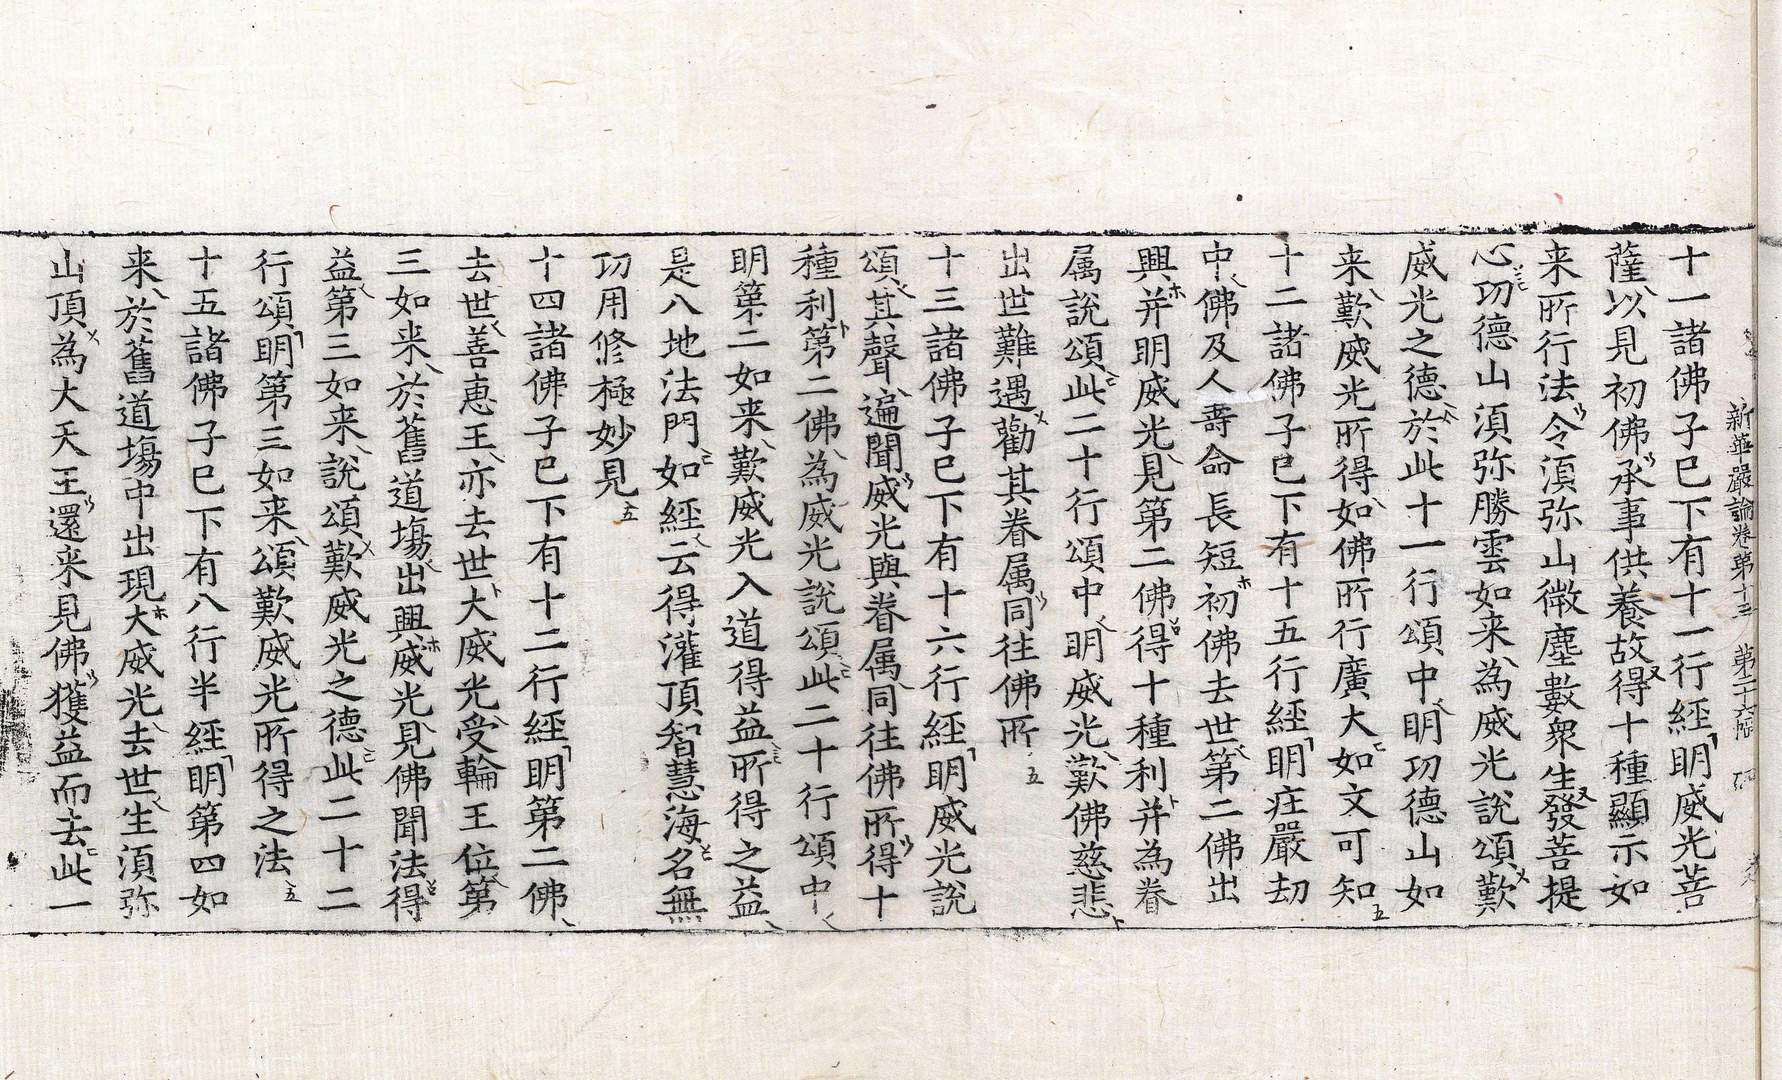 新華嚴論卷第十三 第二十六帳
十一諸佛子已下有十一行經明威光菩
薩以見初佛承事供養故得十種顯示如
来所行法令湏弥山微塵數衆生發菩提
心功德山湏弥勝雲如来為威光說頌歎
威光之德於此十一行頌中明功德山如
来歎威光所得如佛所行廣大如文可知
十二諸佛子已下有十五行經明庄嚴劫
中佛及人壽命長短初佛去世第二佛出
興并明威光見第二佛得十種利并為眷
属說頌此二十行頌中明威光歎佛慈悲
出世難遇勸其眷属同往佛所
十三諸佛子已下有十六行經明威光說
頌其聲遍聞威光與眷属同往佛所得十
種利第二佛為威光說頌此二十行頌中
明第二如来歎威光入道得益所得之益
是八地法門如經云得灌頂智慧海名無
功用修極妙見
十四諸佛子已下有十二行經明第二佛
去世善恵王亦去世大威光受輪王位第
三如来於舊道場出興威光見佛聞法得
益第三如来說頌歎威光之德此二十二
行頌明第三如来頌歎威光所得之法
十五諸佛子已下有八行半經明第四如
来於舊道場中出現大威光去世生湏弥
山頂為大天王還来見佛獲益而去此一